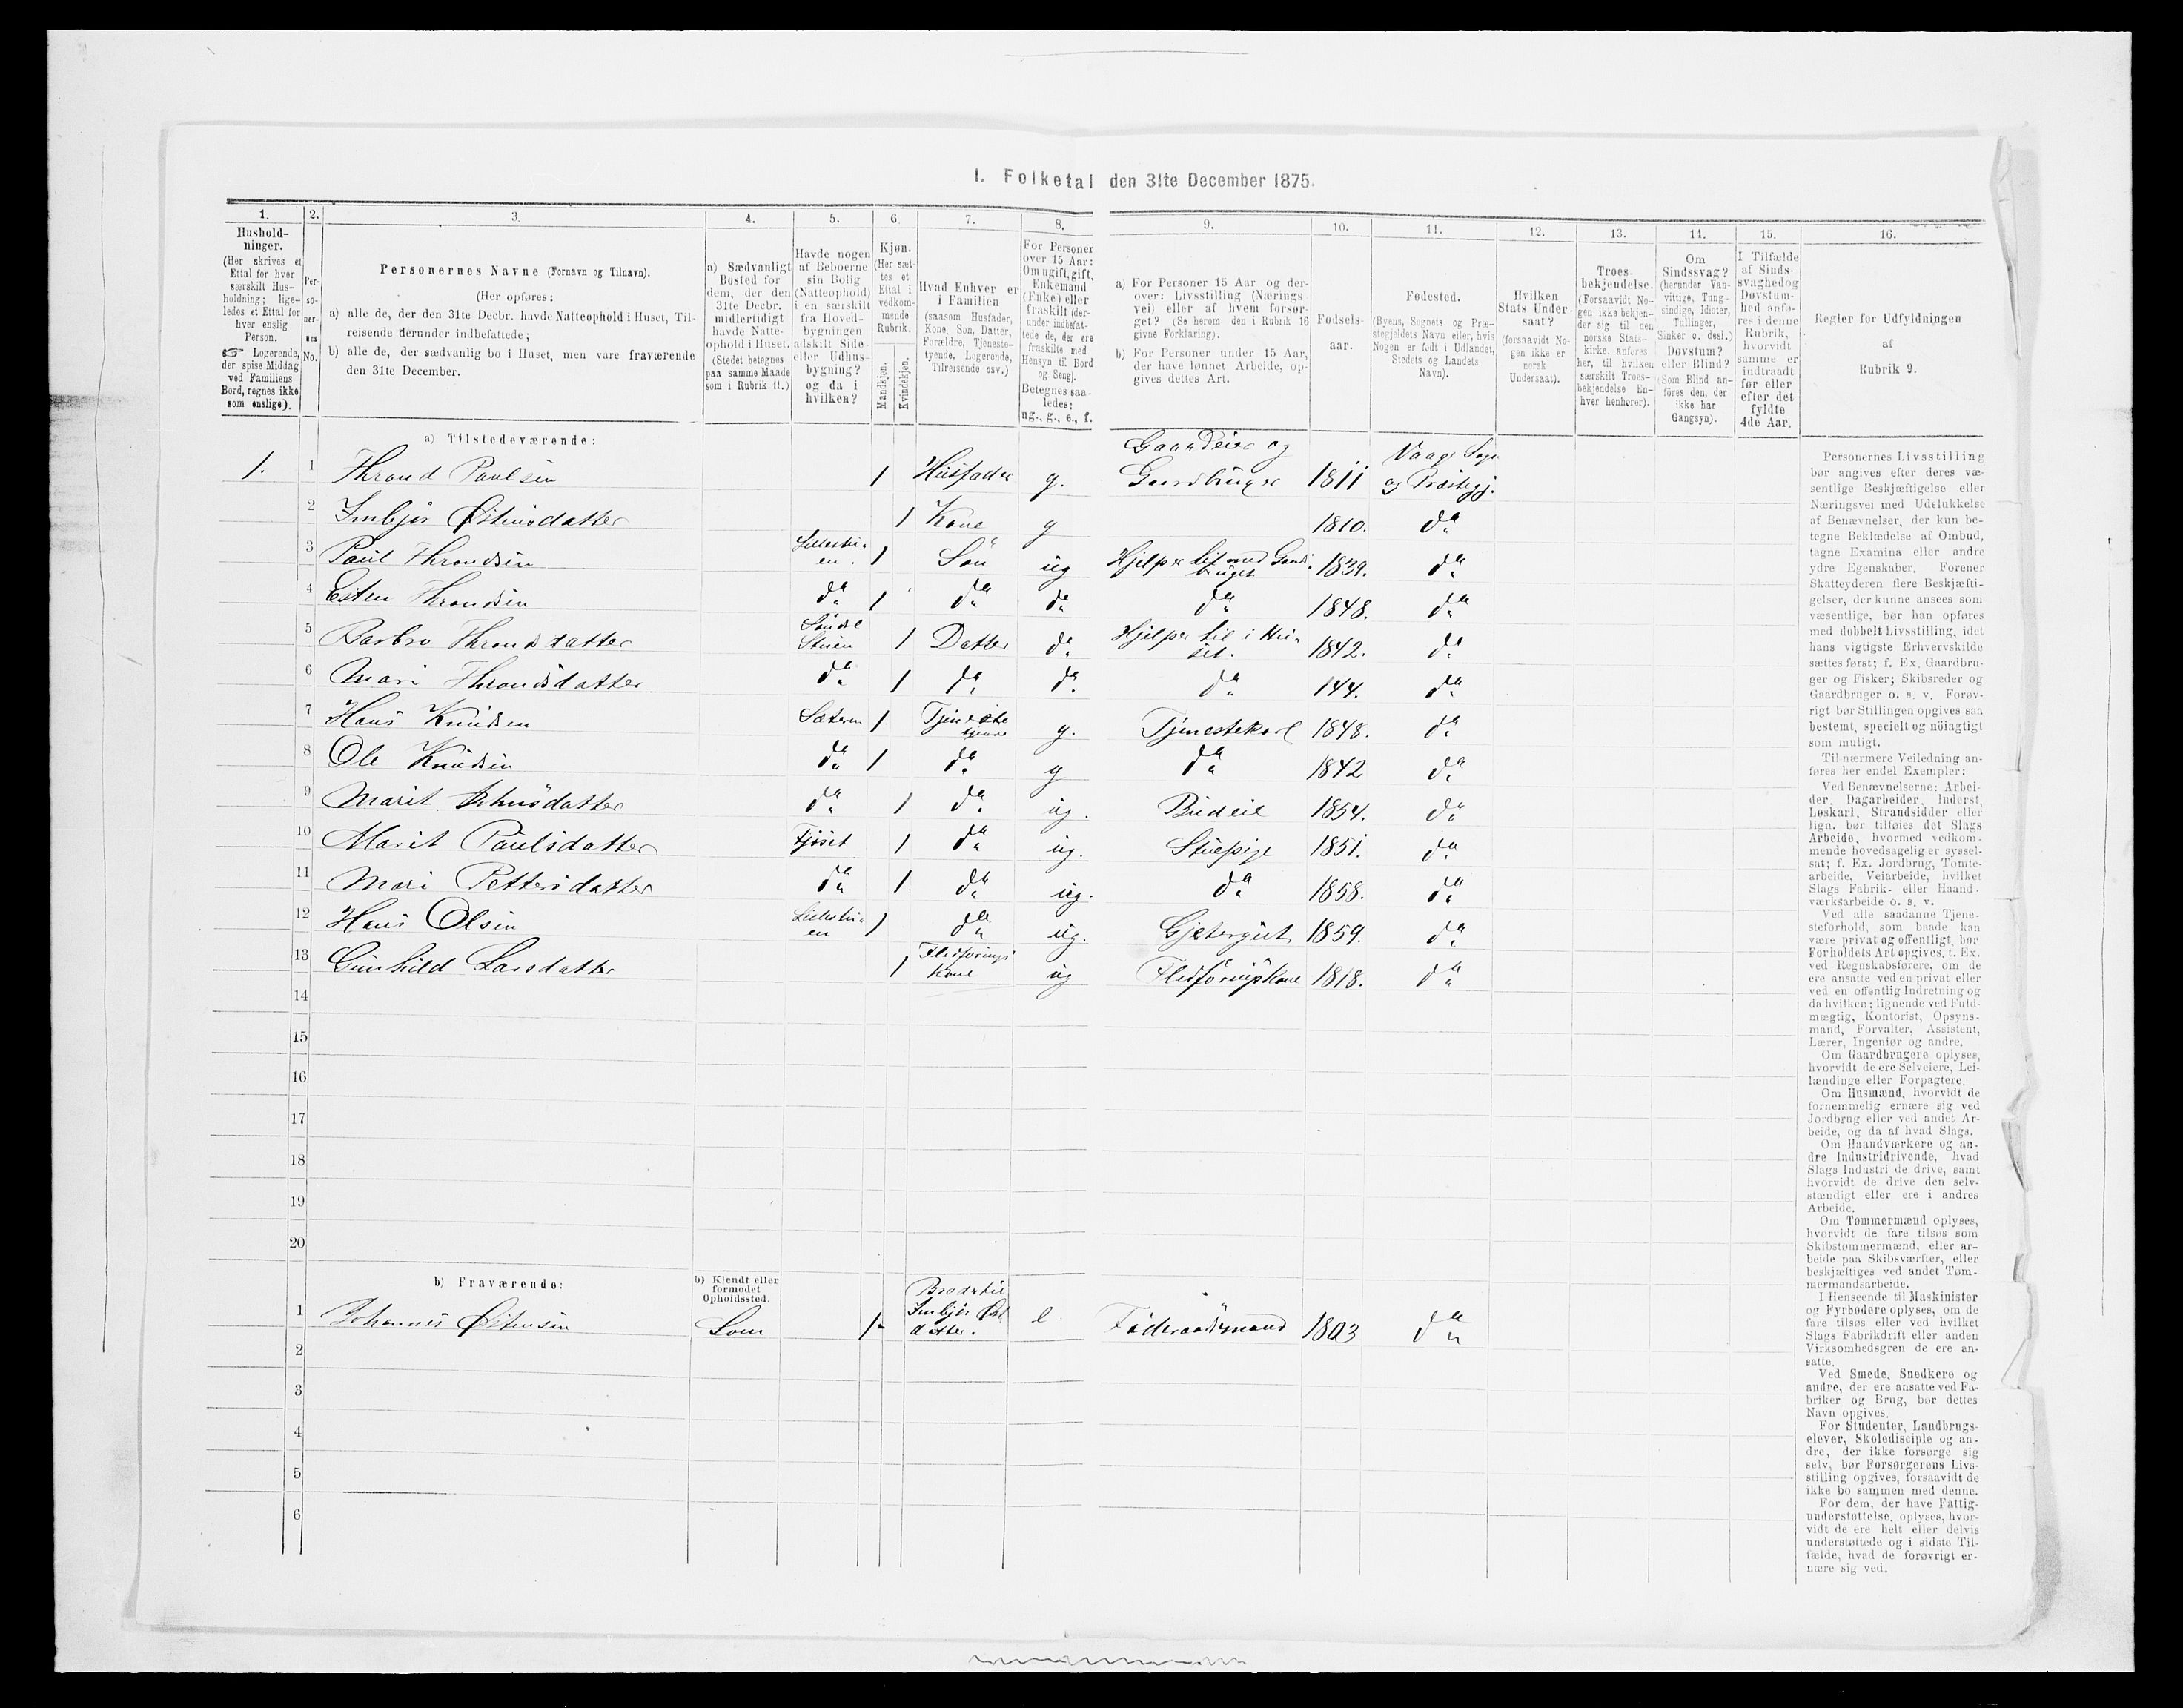 1. Folketal den 31te December 1875.
1. 2. 3. 4. 5. 6. 7. 8. 9. 10. 11. 12. 13. 14. 15. 16.
Hushold-
ninger.
(Her skrives et
Ettal for hver
særskilt Hus-
holdning; lige-
ledes et Ettal for
hver enslig
Person.
☞ Logerende,
der spise Middag
ved Familiens
Bord, regnes ikke
som enslige).
Per-
so-
ner-
nes
No.
Personernes Navne (Fornavn og Tilnavn).
(Her opføres:
a) alle de, der den 31te Decbr. havde Natteophold i Huset, Til-
reisende derunder indbefattede;
b) alle de, der sædvanlig bo i Huset, men vare fraværende
den 31te December.
a) Sædvanligt
Bosted for
dem, der den
31te Decbr.
midlertidigt
havde Natte-
ophold i Huset.
(Stedet betegnes
paa samme Maade
som i Rubrik 11.)
Havde nogen
af Beboerne
sin Bolig
(Natteophold)
i en særskilt
fra Hoved-
bygningen
adskilt Side-
eller Udhus-
bygning?
og da i
hvilken?
Kjøn.
(Her sæt-
tes et
Ettal i
vedkom-
mende
Rubrik.
Mandkjøn.
Kvindekjøn.
Hvad Enhver er
i Familien
(saasom Husfader,
Kone, Søn, Datter,
Forældre, Tjeneste-
tyende, Logerende,
Tilreisende osv.)
For Personer
over 15 Aar:
Om ugift, gift,
Enkemand
(Enke) eller
fraskilt (der-
under indbefat-
tede de, der ere
fraskilte med
Hensyn til Bord
og Seng).
Betegnes saa-
ledes:
ug., g., e., f.
a) For Personer 15 Aar og der-
over: Livsstilling (Nærings
vei) eller af hvem forsør-
get? (Se herom den i Rubrik 16
givne Forklaring).
b) For Personer under 15 Aar,
der have lønnet Arbeide, op-
gives dettes Art.
Fødsels-
aar.
Fødested.
(Byens, Sognets og Præ-
stegjeldets Navn eller, hvis
Nogen er født i Udlandet,
Stedets og Landets
Navn).
Hvilken
Stats Under-
saat?
(forsaavidt No-
gen ikke er
norsk
Undersaat).
Troes-
bekjendelse.
(Forsaavidt No-
gen ikke bekjen-
der sig til den
norske Stats-
kirke, anføres
her, til hvilken
særskilt Troes-
bekjendelse En-
hver henhører).
Om
Sindssvag?
(herunder Van-
vittige, Tung-
sindige, Idioter,
Tullinger,
Sinker o. desl.)
Døvstum?
eller Blind?
(Som Blind an-
føres den, der
ikke har
Gangsyn).
I Tilfælde
af Sinds-
svaghed og
Døvstum-
hed anfø-
res i denne
Rubrik,
hvorvidt
samme er
indtraadt
før eller
efter det
fyldte
4de Aar.
Regler for Udfyldningen
af
Rubrik 9.
a) Tilstedeværende:
Gaardeier og Vaage Sogn
1. 1 Thrond Paulsen 1 Husfader g. Gaardbruger 1811 og Præstegj.
2 Imbjør Østensdatter 1 Kone g 1810. do
3 Paul Throndsen Lillestu-
en. 1 Søn ug Hjelper til med Gards-
bruget 1839. do
4 Esten Throndsen do 1 do do do 1848. do
5 Barbro Throndsdatter Søndre
Stuen 1 Datter do Hjelper til i Hu-
set. 1842. do
6 Mari Throndsdatter do 1 do do do 144. do
7 Hans Knudsen Sæteren 1 Tjeneste
tyende g. Tjenestekarl 1848. do
8 Ole Knudsen do 1 do g do 1842 do
9 Marit Johnsdatter do 1 do ug. Budeie 1854. do
10 Marit Paulsdatter Fjøset 1 do ug. Stuepige 1851. do
11 Mari Pettersdatter do 1 do ug. do 1858. do
12 Hans Olsen Lillestu-
en 1 do ug. Gjætergut 1859. do
13 Gunhild Larsdatter 1 Fledførings
Kone ug Fledføringskone 1818. do
14
15
16
17
18
19
20
b) Fraværende:
b) Kjendt eller
formodet
Opholdssted.
1 Johannes Østensen Lom 1 Broder til
Imbjør Øst
datter. e. Føderaadsmand 1803 do
2
3
4
5
6
Personernes Livsstilling
bør angives efter deres væ-
sentlige Beskjæftigelse eller
Næringsvei med Udelukkelse
af Benævnelser, der kun be-
tegne Beklædelse af Ombud,
tagne Examina eller andre
ydre Egenskaber. Forener
Skatteyderen flere Beskjæfti-
gelser, der kunne ansees som
væsentlige, bør han opføres
med dobbelt Livsstilling, idet
hans vigtigste Erhvervskilde
sættes først; f. Ex. Gaardbru-
ger og Fisker; Skibsreder og
Gaardbruger o. s. v. Forøv-
rigt bør Stillingen opgives saa
bestemt, specielt og nöiagtigt
som muligt.
Til nærmere Veiledning an-
føres her endel Exempler:
Ved Benævnelserne: Arbei-
der, Dagarbeider, Inderst,
Løskarl, Strandsidder eller
lign. bør tilføies det Slags
Arbeide, hvormed vedkom-
mende hovedsagelig er syssel-
sat; f. Ex. Jordbrug, Tomte-
arbeide, Veiarbeide, hvilket
Slags Fabrik- eller Haand-
værksarbeide o. s. v.
Ved alle saadanne Tjene-
steforhold, som baade kan
være privat og offentligt, bør
Forholdets Art opgives, t. Ex.
ved Regnskabsførere, om de
ere ansatte ved en privat eller
ved en offentlig Indretning og
da hvilken; lignende ved Fuld-
mægtig, Kontorist, Opsyns-
mand, Forvalter, Assistent,
Lærer, Ingeniør og andre.
Om Gaardbrugere oplyses,
hvorvidt de ere Selveiere, Lei-
lændinge eller Forpagtere.
Om Husmænd, hvorvidt de
fornemmelig ernære sig ved
Jordbrug eller ved andet Ar-
beide, og da af hvad Slags.
Om Haandværkere og an-
dre Industridrivende, hvad
Slags Industri de drive, samt
hvorvidt de drive den selv-
stændigt eller ere i andres
Arbeide.
Om Tømmermænd oplyses,
hvorvidt de fare tilsøs som
Skibstømmermænd, eller ar-
beide paa Skibsværfter, eller
beskjæftiges ved andet Tøm-
mermandsarbeide.
I Henseende til Maskinister
og Fyrbødere oplyses, om de
fare tilsøs eller ved hvilket
Slags Fabrikdrift eller anden
Virksomhedsgren de ere an-
satte.
Ved Smede, Snedkere og
andre, der ere ansatte ved Fa-
briker og Brug, bør dettes
Navn opgives.
For Studenter, Landbrugs-
elever, Skoledisciple og an-
dre, der ikke forsørge sig
selv, bør Forsørgerens Livs-
stilling opgives, forsaavidt de
ikke bo sammen med denne.
For dem, der have Fattig-
understøttelse, oplyses, hvor-
vidt de ere helt eller delvis
understøttede og i sidste Til-
fælde, hvad de forøvrigt er-
nære sig ved.